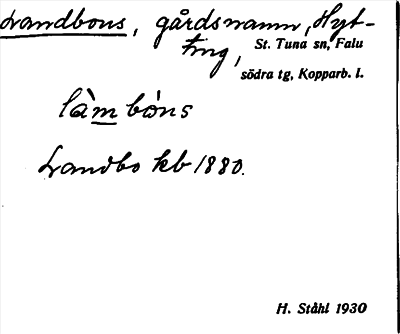 Landbons, gårdsnamn, Hyt-
ting, St. Tuna sn, Falu
södra tg, Kopparb. l.
làm bóns
Landbo kb 1880.
H. Ståhl 1930